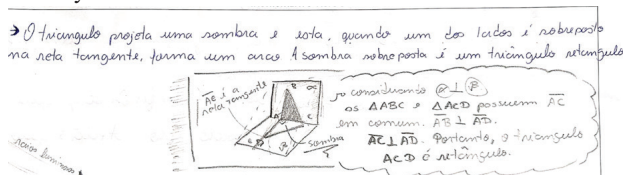 → O triangulo projeta uma sombra e esta, quando um dos lados é sobreposto
na reta tangente, forma um arco. A sombra sobreposta é um triângulo retangulo
AE é a
reta tangente
B
α
A
C
E
D
β
sombra
raios luminosos
→ considerando α ⊥ β
os ΔABC e ΔACD possuem AC
em comum. AB ⊥ AD.
AC ⊥ AD. Portanto, o triangulo
ACD é retângulo.